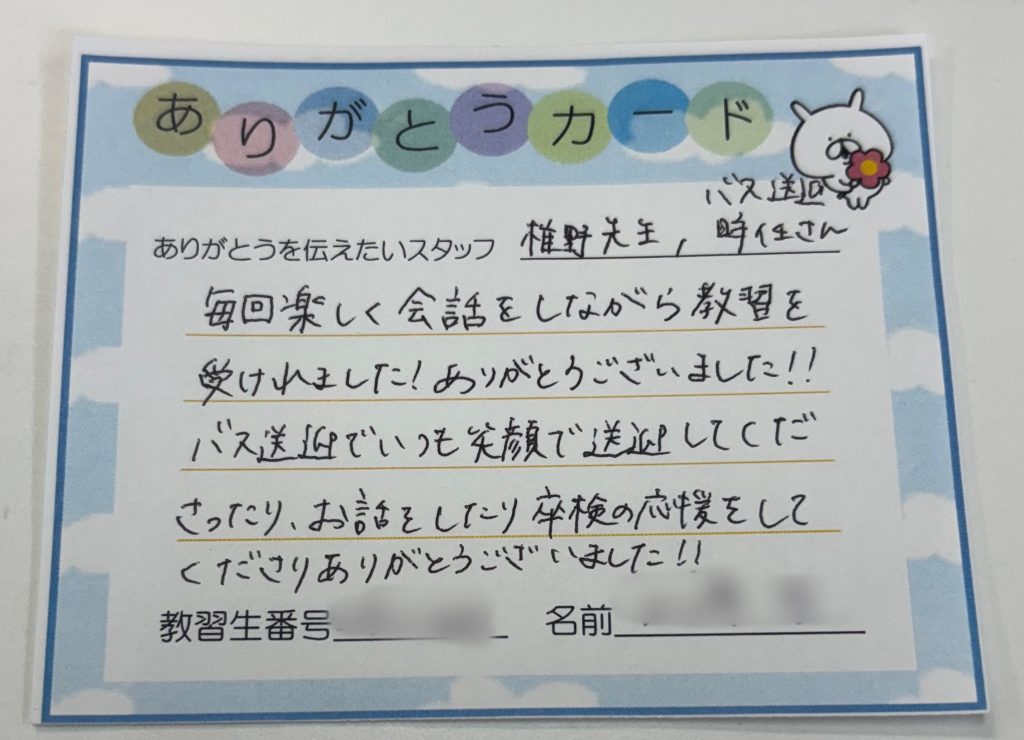 ありがとうカード
バス送迎
ありがとうを伝えたいスタッフ 椎野先生, 時任さん
毎回楽しく会話をしながら教習を
受けれました!ありがとうございました!!
バス送迎でいつも笑顔で送迎してくだ
さったり、お話をしたり卒検の応援をして
くださりありがとうございました!!
教習生番号 名前